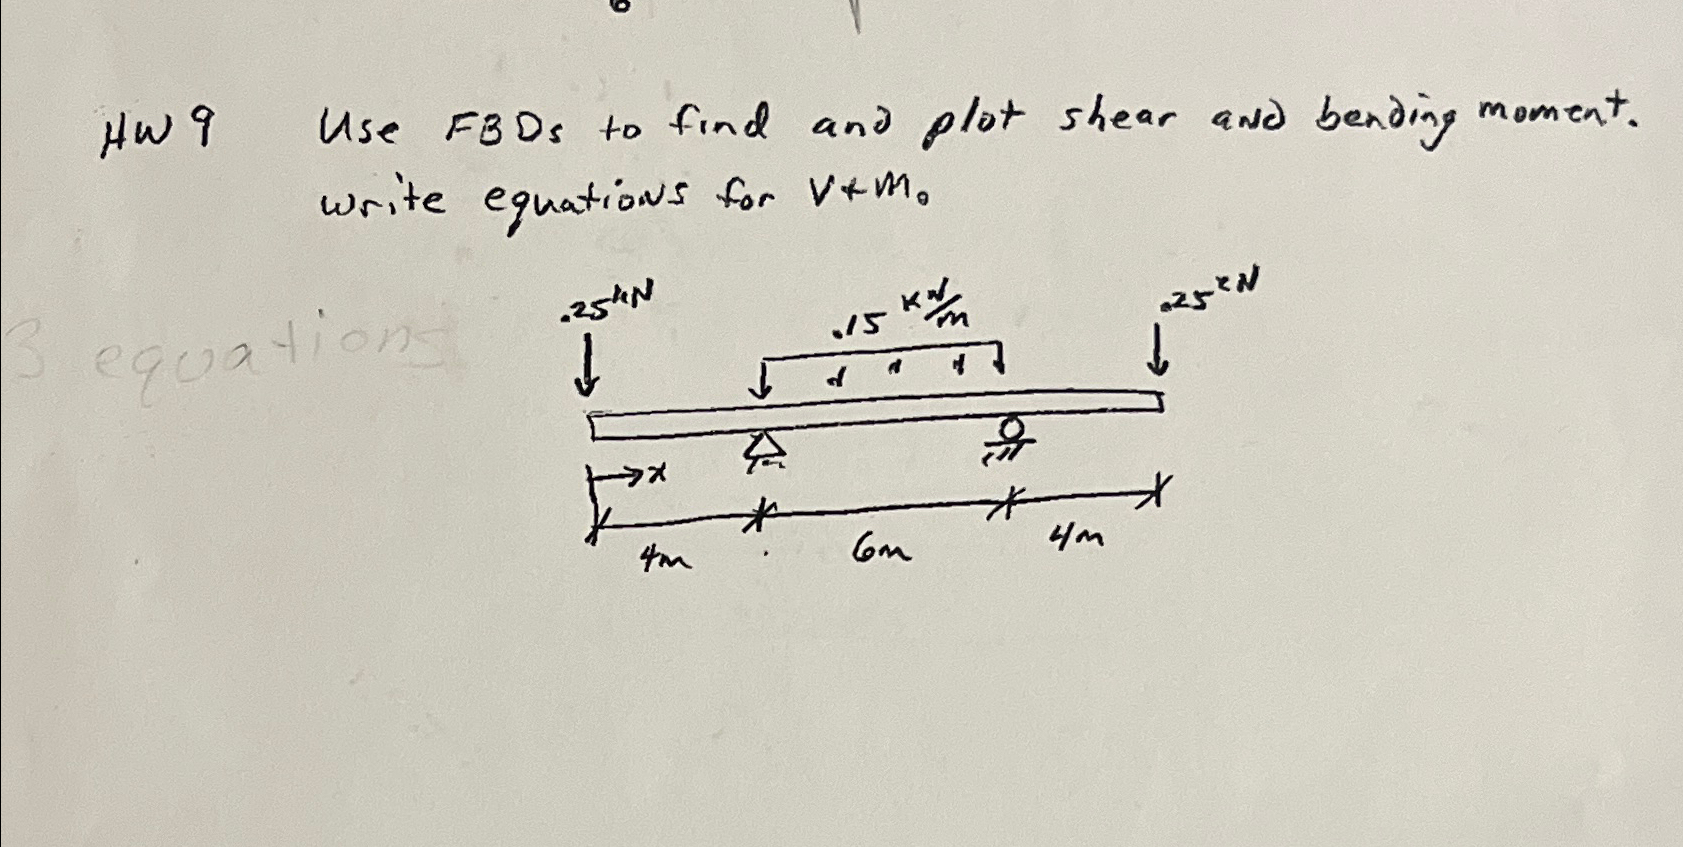 HW 9 Use FBDs to find and plot shear and bending moment.
write equations for V + M.
.25 kN
.15 kN/m
.25 kN
3 equations
x
4m
6m
4m